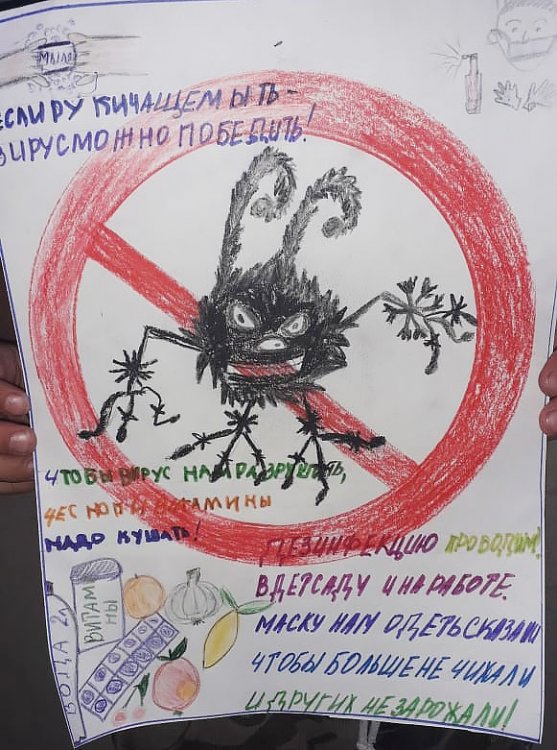 МЫЛО
ЕСЛИ РУКИ ЧАЩЕ МЫТЬ -
ВИРУС МОЖНО ПОБЕДИТЬ!
ЧТОБЫ ВИРУС НАМ РАЗРУШИТЬ,
ЧЕСНОК И ВИТАМИНЫ
НАДО КУШАТЬ!
ДЕЗИНФЕКЦИЮ ПРОВОДИМ,
В ДЕТСАДУ И НА РАБОТЕ.
МАСКУ НАМ ОДЕТЬ СКАЗАЛИ
ЧТОБЫ БОЛЬШЕ НЕ ЧИХАЛИ
И ДРУГИХ НЕ ЗАРОЖАЛИ!
ВИТАМ
НЫ
ВОДА 2л